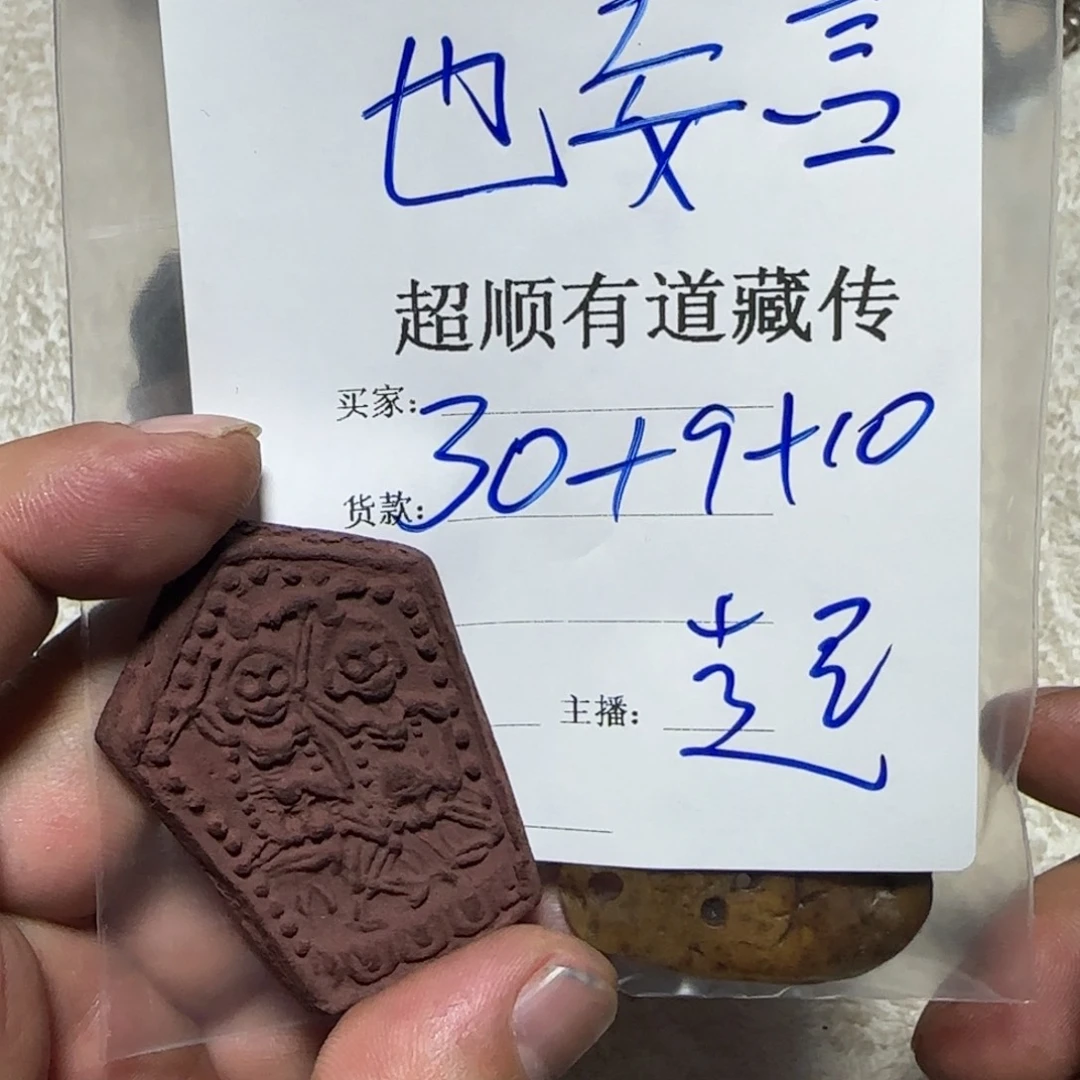 也妄言
超顺有道藏传
买家：
货款：30+9+10
主播：